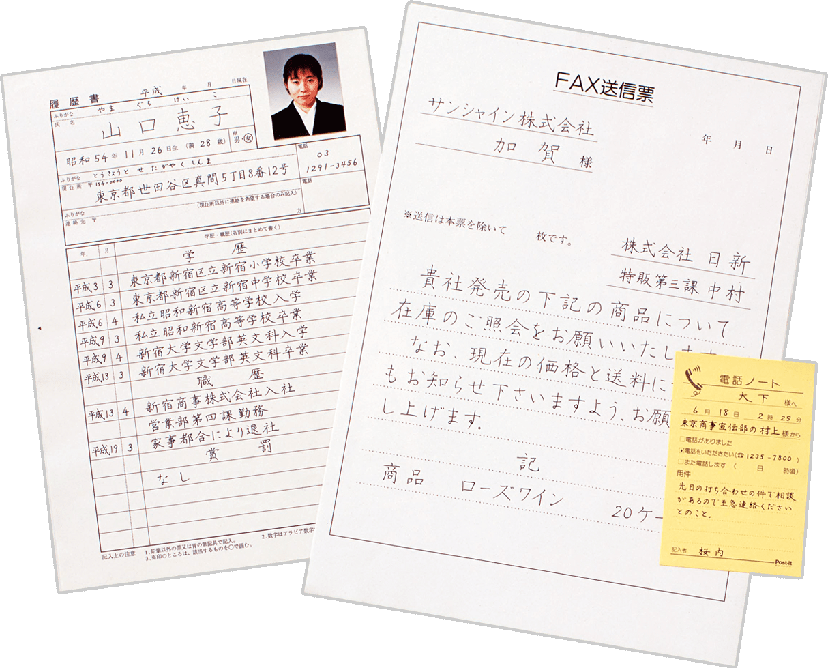 履歴書 平成 年 月 日現在
ふりがな やま ぐち けい こ
氏名
山口 恵子
昭和54年11月26日生(満28歳)
ふりがな とうきょうと せたがやく
東京都世田谷区真間5丁目8番12号
電話
03
1291-3456
ふりがな
電話
年 月 学歴・職歴(各別にまとめて書く)
学歴
平成3 3 東京都新宿区立新宿小学校卒業
平成6 3 東京都新宿区立新宿中学校卒業
平成6 4 私立昭和新宿高等学校入学
平成9 3 私立昭和新宿高等学校卒業
平成9 4 新宿大学文学部英文科入学
平成13 3 新宿大学文学部英文科卒業
職歴
平成13 4 新宿商事株式会社入社
営業部第四課勤務
平成19 3 家事都合により退社
賞罰
なし
記入上の注意
FAX送信票
サンシャイン株式会社
加賀 様
年 月 日
※送信は本票を除いて 枚です。
株式会社 日新
特販第三課 中村
貴社発売の下記の商品について
在庫のご照会をお願いいたします。
なお、現在の価格と送料に
もお知らせ下さいますよう、お願
し上げます。
記
商品 ローズワイン 20ケー
電話ノート
大下 様へ
6月18日 2時25分
東京商事宣伝部の村上様から
□電話がありました
電話をいただきたい(☎1235-7800)
□また電話します( 日 時頃)
用件
先日の打ち合わせの件で相談
があるので至急連絡ください
とのこと。
記入者 坂内